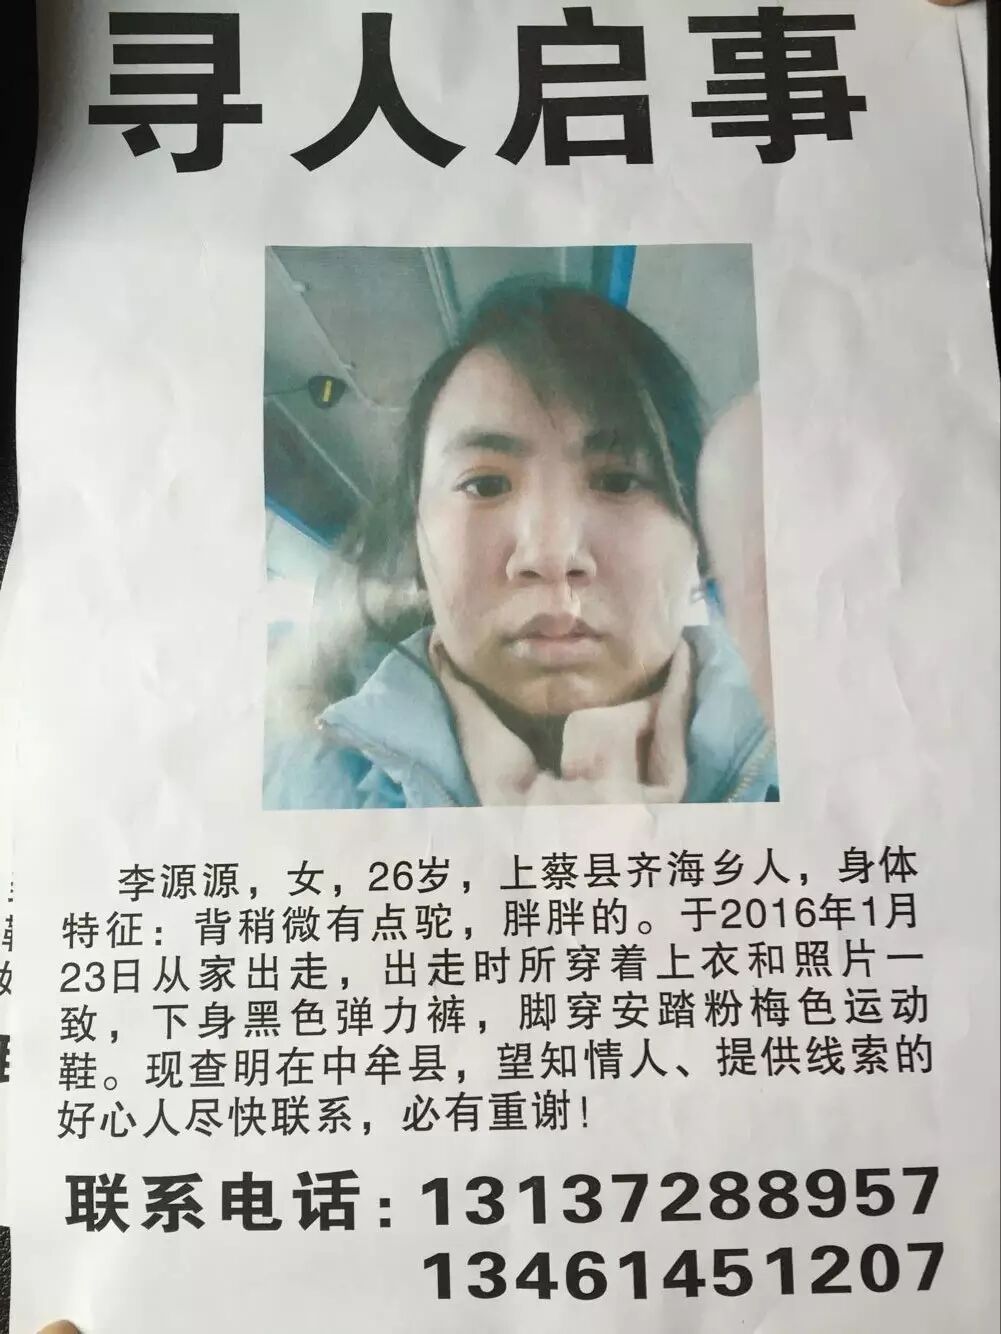 寻人启事
李源源，女，26岁，上蔡县齐海乡人，身体
特征：背稍微有点驼，胖胖的。于2016年1月
23日从家出走，出走时所穿着上衣和照片一
致，下身黑色弹力裤，脚穿安踏粉梅色运动
鞋。现查明在中牟县，望知情人、提供线索的
好心人尽快联系，必有重谢！
联系电话：13137288957
13461451207